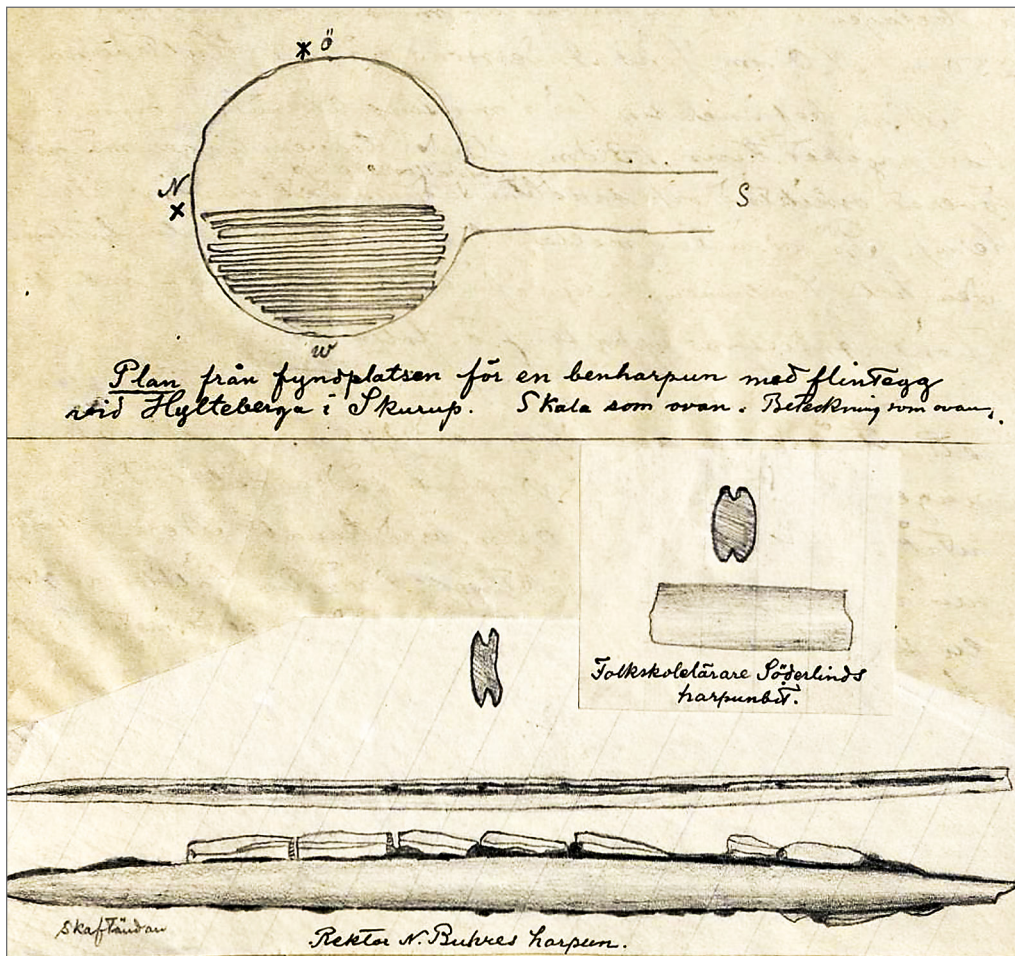 Ö
N
S
W
Plan från fyndplatsen för en benharpun med flintegg
vid Hylteberga i Skurup. Skala som ovan. Beteckning som ovan.
Folkskolelärare Söderlinds
harpunbit.
Skaftändan
Rektor N. Buhres harpun.